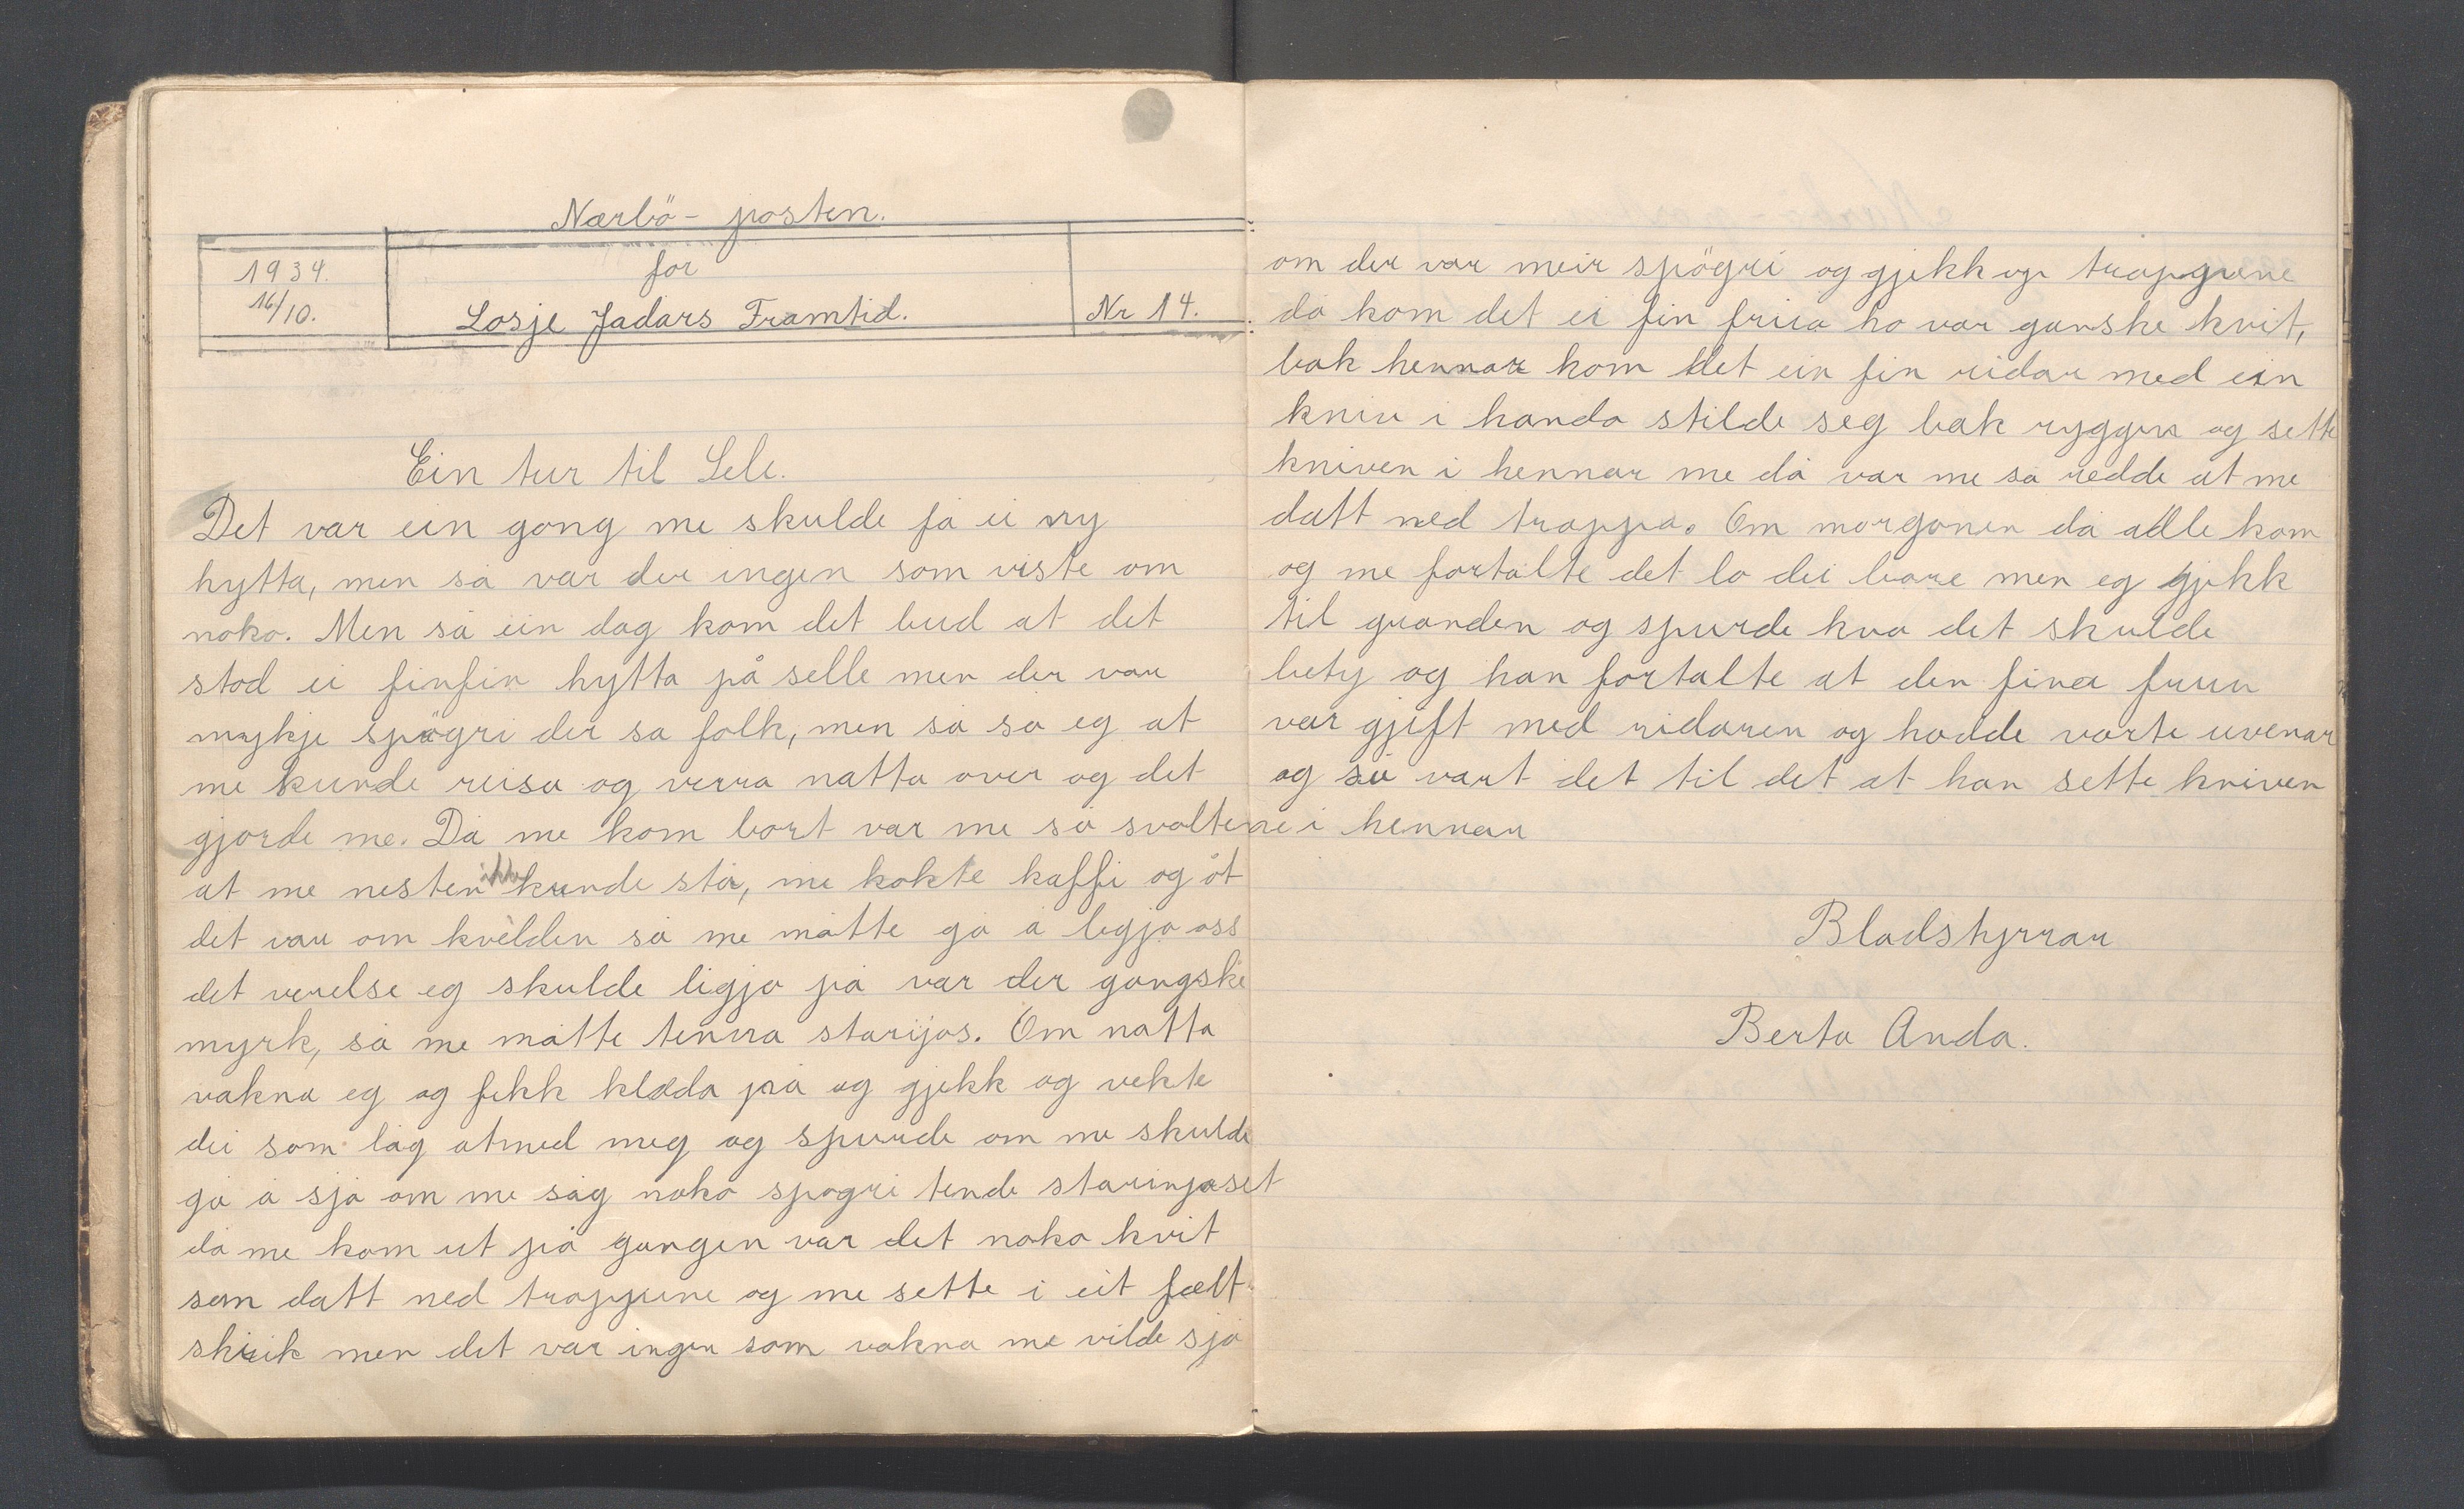 Nærbö-posten.
1934.
16/10.
for
Losje Jadars Framtid.
Nr 14.
Ein tur til Sele.
Det var ein gong me skulde få ei ny
hytta, men så var der ingen som viste om
noko. Men så ein dag kom det bud at det
stod ei finfin hytta på selle men der var
mykje spögri der sa folk, men så sa eg at
me kunde reisa og verra natta over og det
gjorde me. Då me kom bort var me så svoltene
at me nesten ikke kunde stå, me kokte kaffi og åt
det var om kvelden så me måtte gå å legja oss
det verelse eg skulde ligja på var der gangske
myrk, så me måtte tenna starijos. Om natta
vakna eg og fekk klæda på og gjekk og vekte
dei som låg atmed meg og spurde om me skulde
gå å sjå om me såg noko spogri tende starinjoset
då me kom ut på gangen var det noko kvit
som datt ned trappene og me sette i eit fælt
skrik men det var ingen som vakna me vilde sjå
om der var meir spögri og gjekk op trappene
då kom det ei fin frua ho var ganske kvit,
bak hennar kom det ein fin ridar med ein
kniv i handa stilde seg bak ryggen og sette
kniven i hennar me då var me så redde at me
datt ned trappa. Om morgonen då adle kom
og me fortalte det lo dei bare men eg gjekk
til granden og spurde kva det skulde
bety og han fortalte at den fina fruen
var gjeft med ridaren og hadde vorte uvenar
og så vart det til det at han sette kniven
i hennar
Bladstyrrar
Berta Anda.